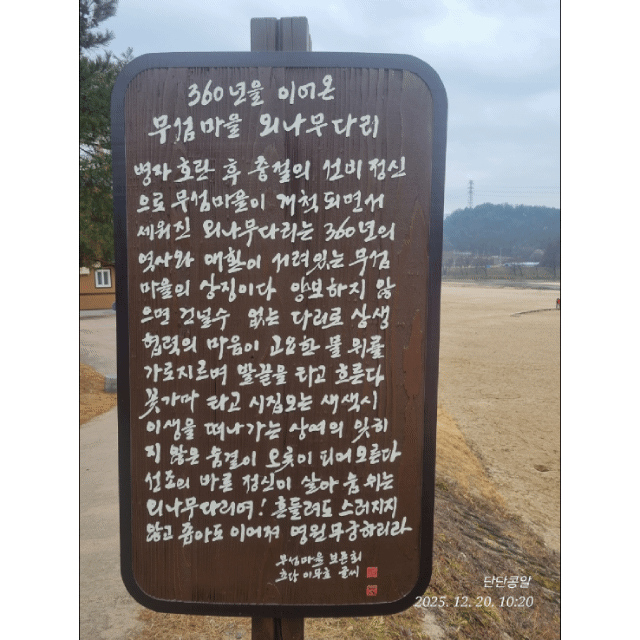 360년을 이어온
무섬마을 외나무다리
병자호란 후 충절의 선비정신
으로 무섬마을이 개척되면서
세워진 외나무다리는 360년의
역사와 애환이 서려있는 무섬
마을의 상징이다 양보하지 않
으면 건널수 없는 다리로 상생
협력의 마음이 고요한 물 위를
가로지르며 발끝을 타고 흐른다
꽃가마 타고 시집오는 새색시
이생을 떠나가는 상여의 잊히
지 않은 숨결이 오롯이 되어오른다
선조의 바른 정신이 살아 숨쉬는
외나무다리여! 흔들려도 스러지지
않고 좁아도 이어져 영원무궁하리라
무섬마을 보존회
글씨
단단콩알
2025. 12. 20. 10:20